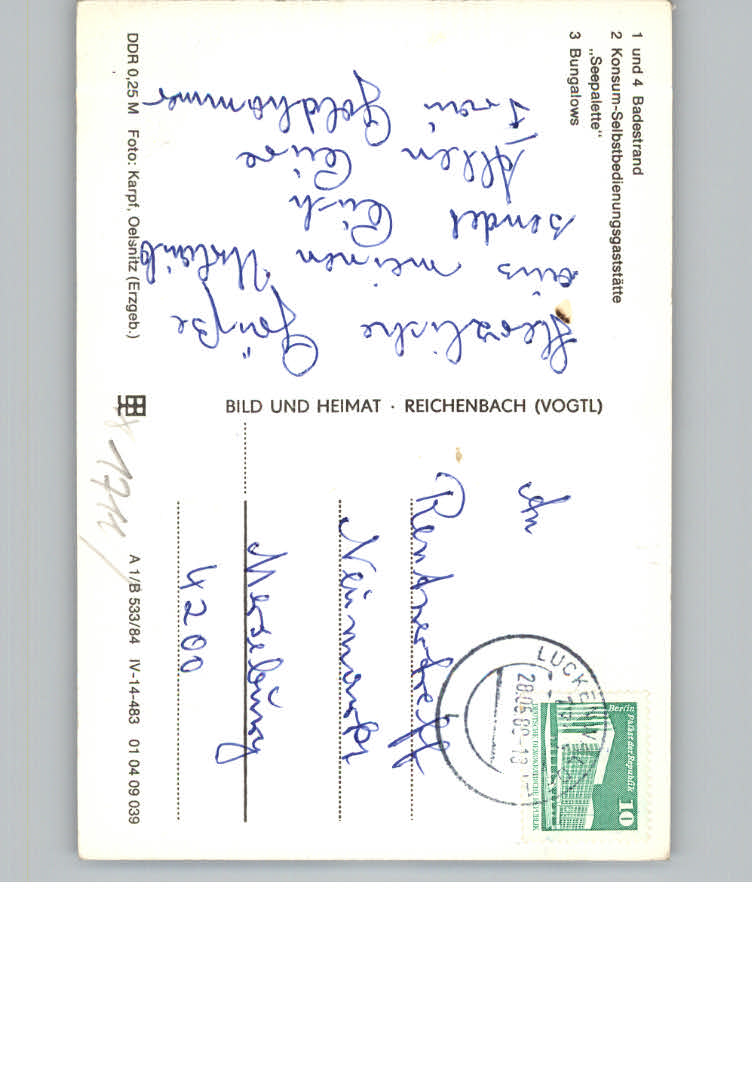 1 und 4 Badestrand
2 Konsum-Selbstbedienungsgaststätte
„Seepalette"
3 Bungalows
Herzliche Grüße
aus meinen Urlaub
sendet Euch
Allen Eure
Frau Goldhammer
DDR 0,25 M Foto: Karpf, Oelsnitz (Erzgeb.)
BILD UND HEIMAT · REICHENBACH (VOGTL)
An
Rentnertreff
Neumarkt
Merseburg
4200
A 1/B 533/84 IV-14-483 01 04 09 039
1711
28.06.
Berlin Palast der Republik
10
DEUTSCHE DEMOKRATISCHE REPUBLIK